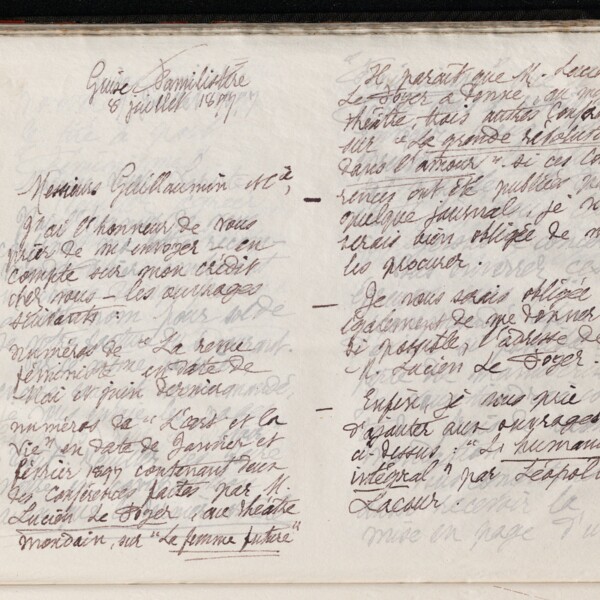 Guise Familistère
8 juillet 1897
Messieurs Guillaumin et Cie,
J'ai l'honneur de vous
prier de m'envoyer – en
compte sur mon crédit
chez vous – les ouvrages
suivants :
numéros de "La revue
féministe" en date de
Mai et juin derniers
numéros de "L'art et la
Vie" en date de Janvier et
février 1897 contenant deux
des conférences faites par M.
Lucien Le Foyer, au théâtre
mondain, sur "La femme future"
– Il paraît que M. Lucien
Le Foyer a donné, au m
théâtre trois autres confér
sur "La grande révolution
dans l'amour". Si ces con
rences ont été publiées
quelque journal, je v
serais bien obligée de m
les procurer.
– Je vous serais obligée
également de me donner
si possible, l'adresse de
M. Lucien Le Foyer.
– Enfin je vous prie
d'ajouter aux ouvrages
ci-dessus : "L'humanis
intégral" par Léopol
Lacour
mise en page d'u